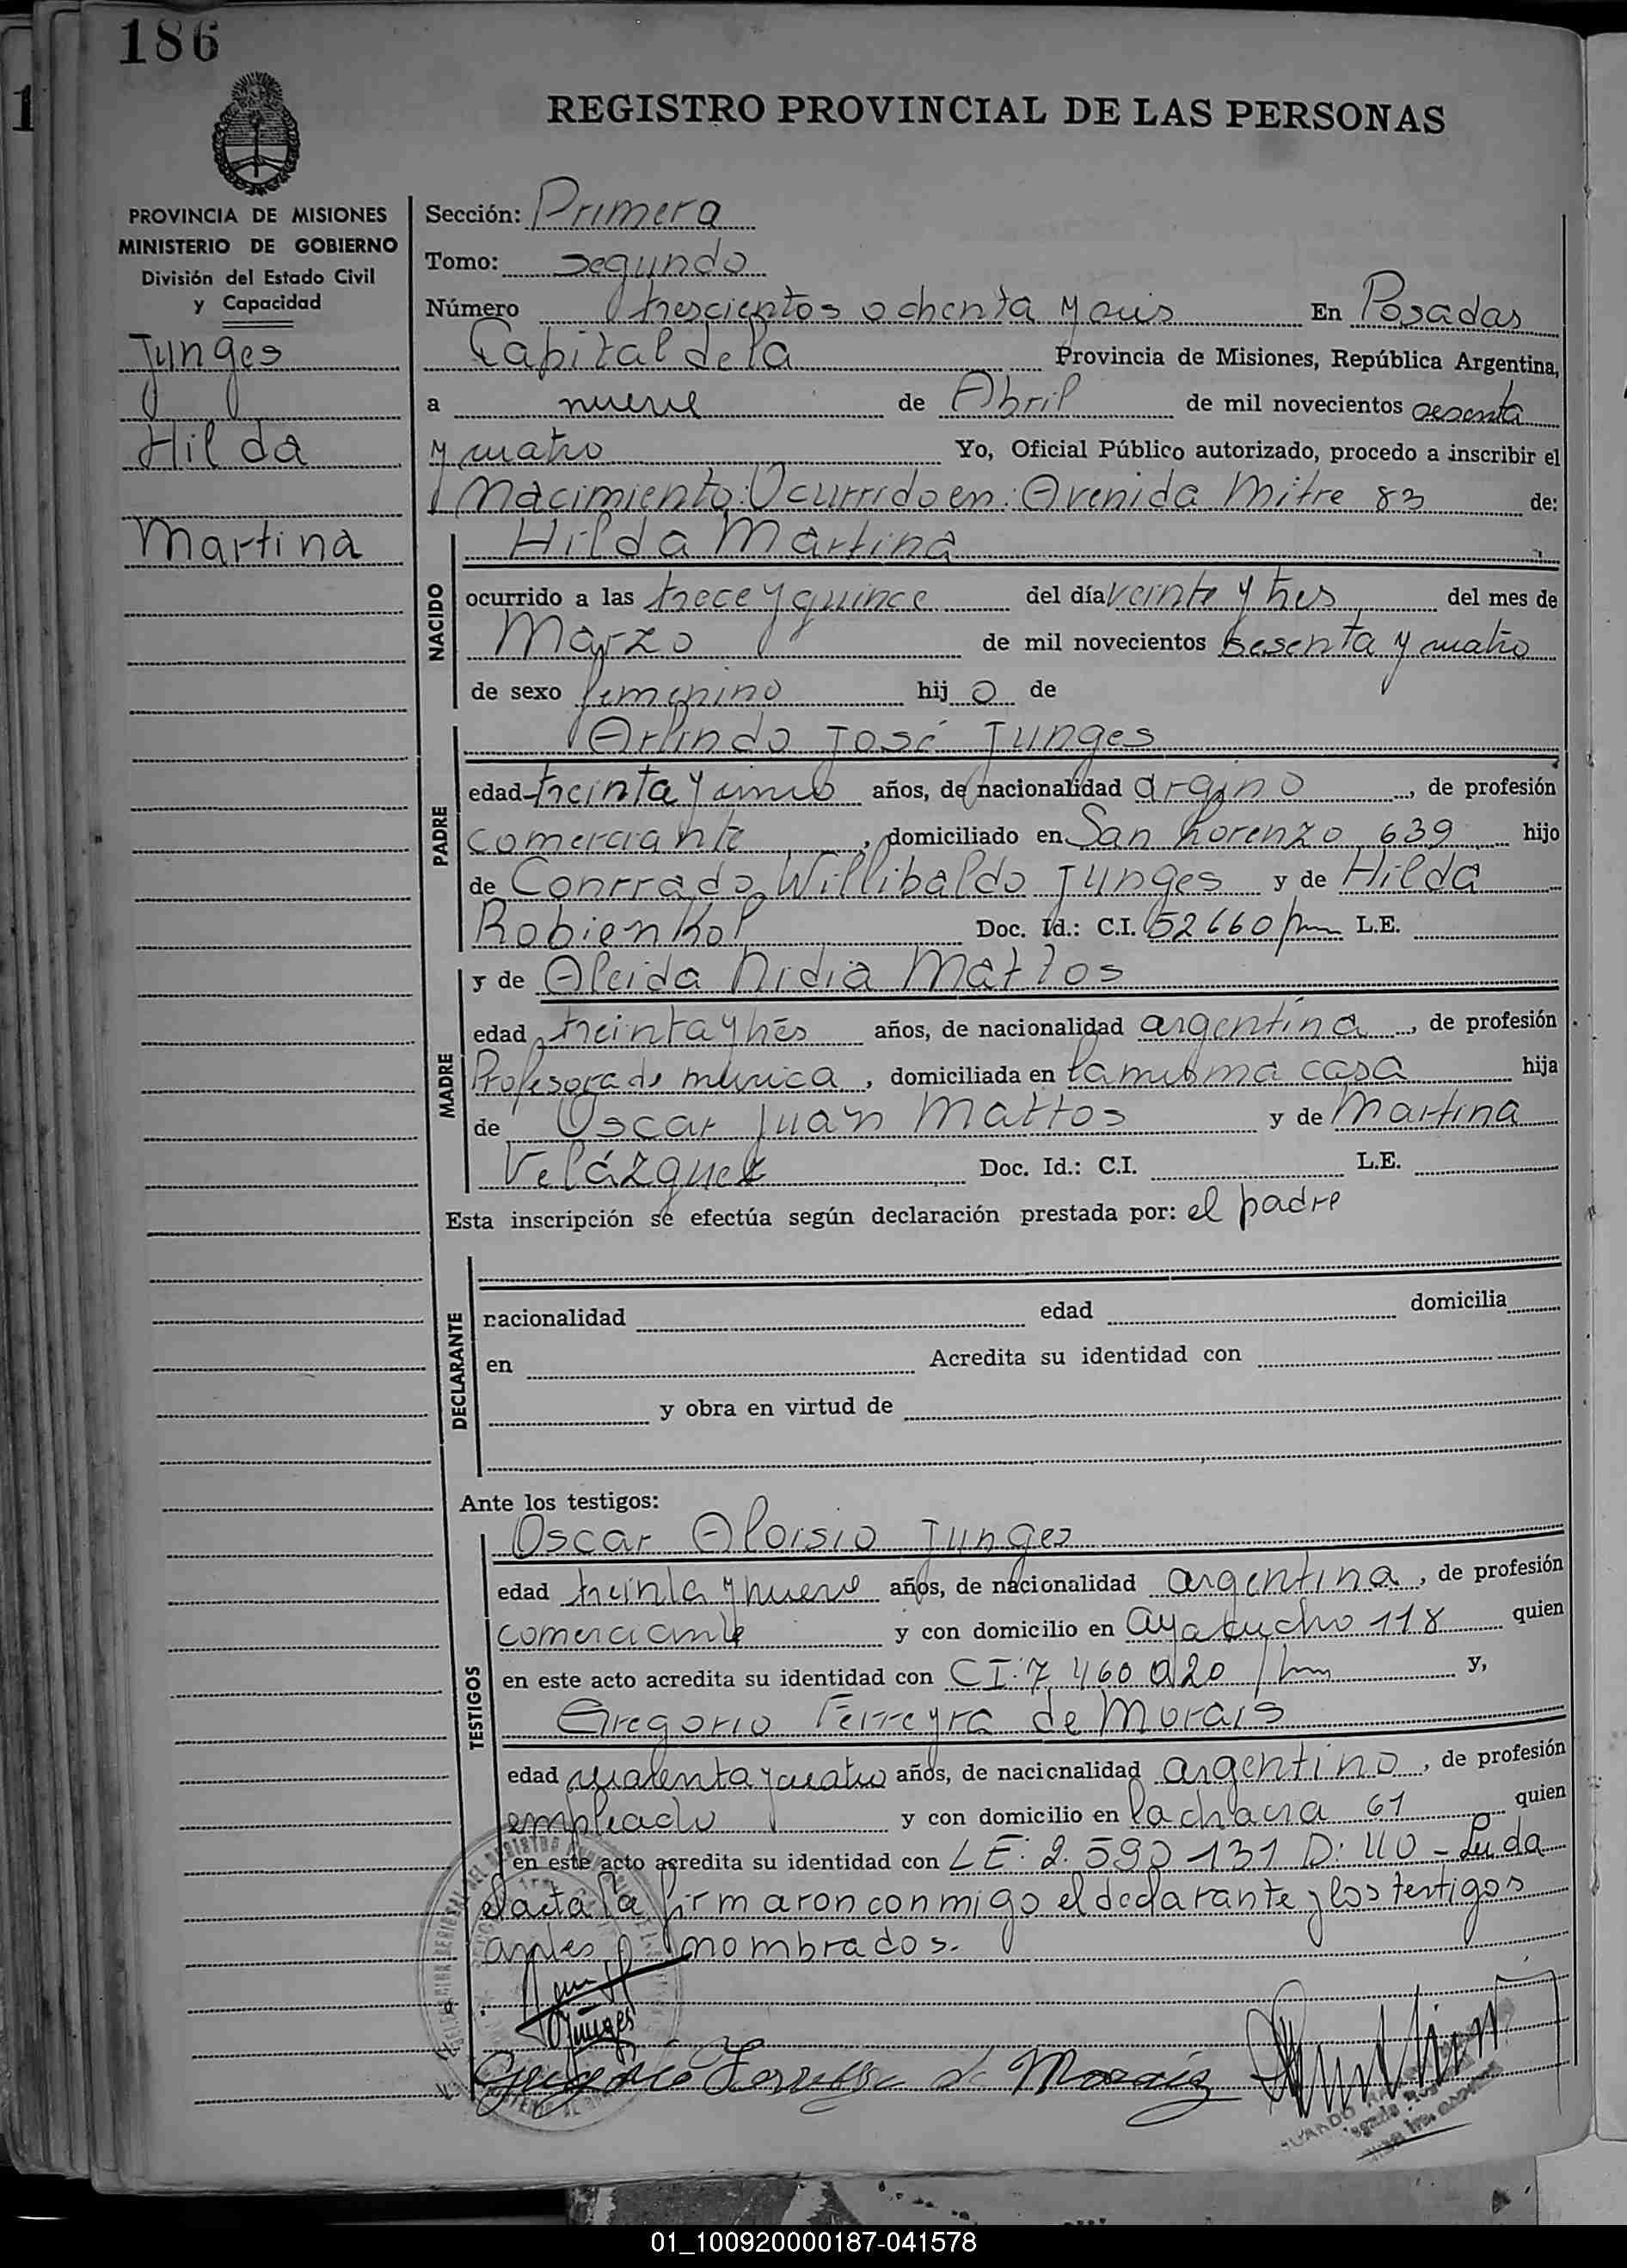 186
REGISTRO PROVINCIAL DE LAS PERSONAS
PROVINCIA DE MISIONES
MINISTERIO DE GOBIERNO
División del Estado Civil
y Capacidad
Junges
Hilda
Martina
Sección: Primera
Tomo: segundo
Número trescientos ochenta y seis En Posadas
Capital de la Provincia de Misiones, República Argentina,
a nueve de Abril de mil novecientos sesenta
y cuatro Yo, Oficial Público autorizado, procedo a inscribir el
Nacimiento: Ocurrido en: Avenida Mitre 83 de:
NACIDO
Hilda Martina
ocurrido a las trece y quince del día veinte y tres del mes de
Marzo de mil novecientos sesenta y cuatro
de sexo femenino hij o de
PADRE
Arlindo José Junges
edad treinta y cinco años, de nacionalidad argino, de profesión
comerciante, domiciliado en San Lorenzo 639 hijo
de Conrrado Willibaldo Junges y de Hilda
Robienkol Doc. Id.: C.I. 52660/ L.E.
MADRE
y de Aleida Nidia Mattos
edad treinta y tres años, de nacionalidad argentina, de profesión
Profesora de música, domiciliada en la misma casa hija
de Oscar Juan Mattos y de Martina
Velázquez Doc. Id.: C.I. L.E.
Esta inscripción se efectúa según declaración prestada por: el padre
DECLARANTE
nacionalidad edad domicilia
en Acredita su identidad con
y obra en virtud de
Ante los testigos:
TESTIGOS
Oscar Aloisio Junges
edad treinta y nueve años, de nacionalidad argentina, de profesión
comerciante y con domicilio en Ayacucho 118 quien
en este acto acredita su identidad con CI: 7 460 020 / y,
Gregorio Ferreyra de Morais
edad cuarenta y cuatro años, de nacionalidad argentino, de profesión
empleado y con domicilio en la chacra 61 quien
en este acto acredita su identidad con LE: 2.590 131 D: UO - Leida
el acta la firmaron conmigo el declarante y los testigos
antes nombrados.
Junges
Gregorio Ferreyra de Morais
01_100920000187-041578